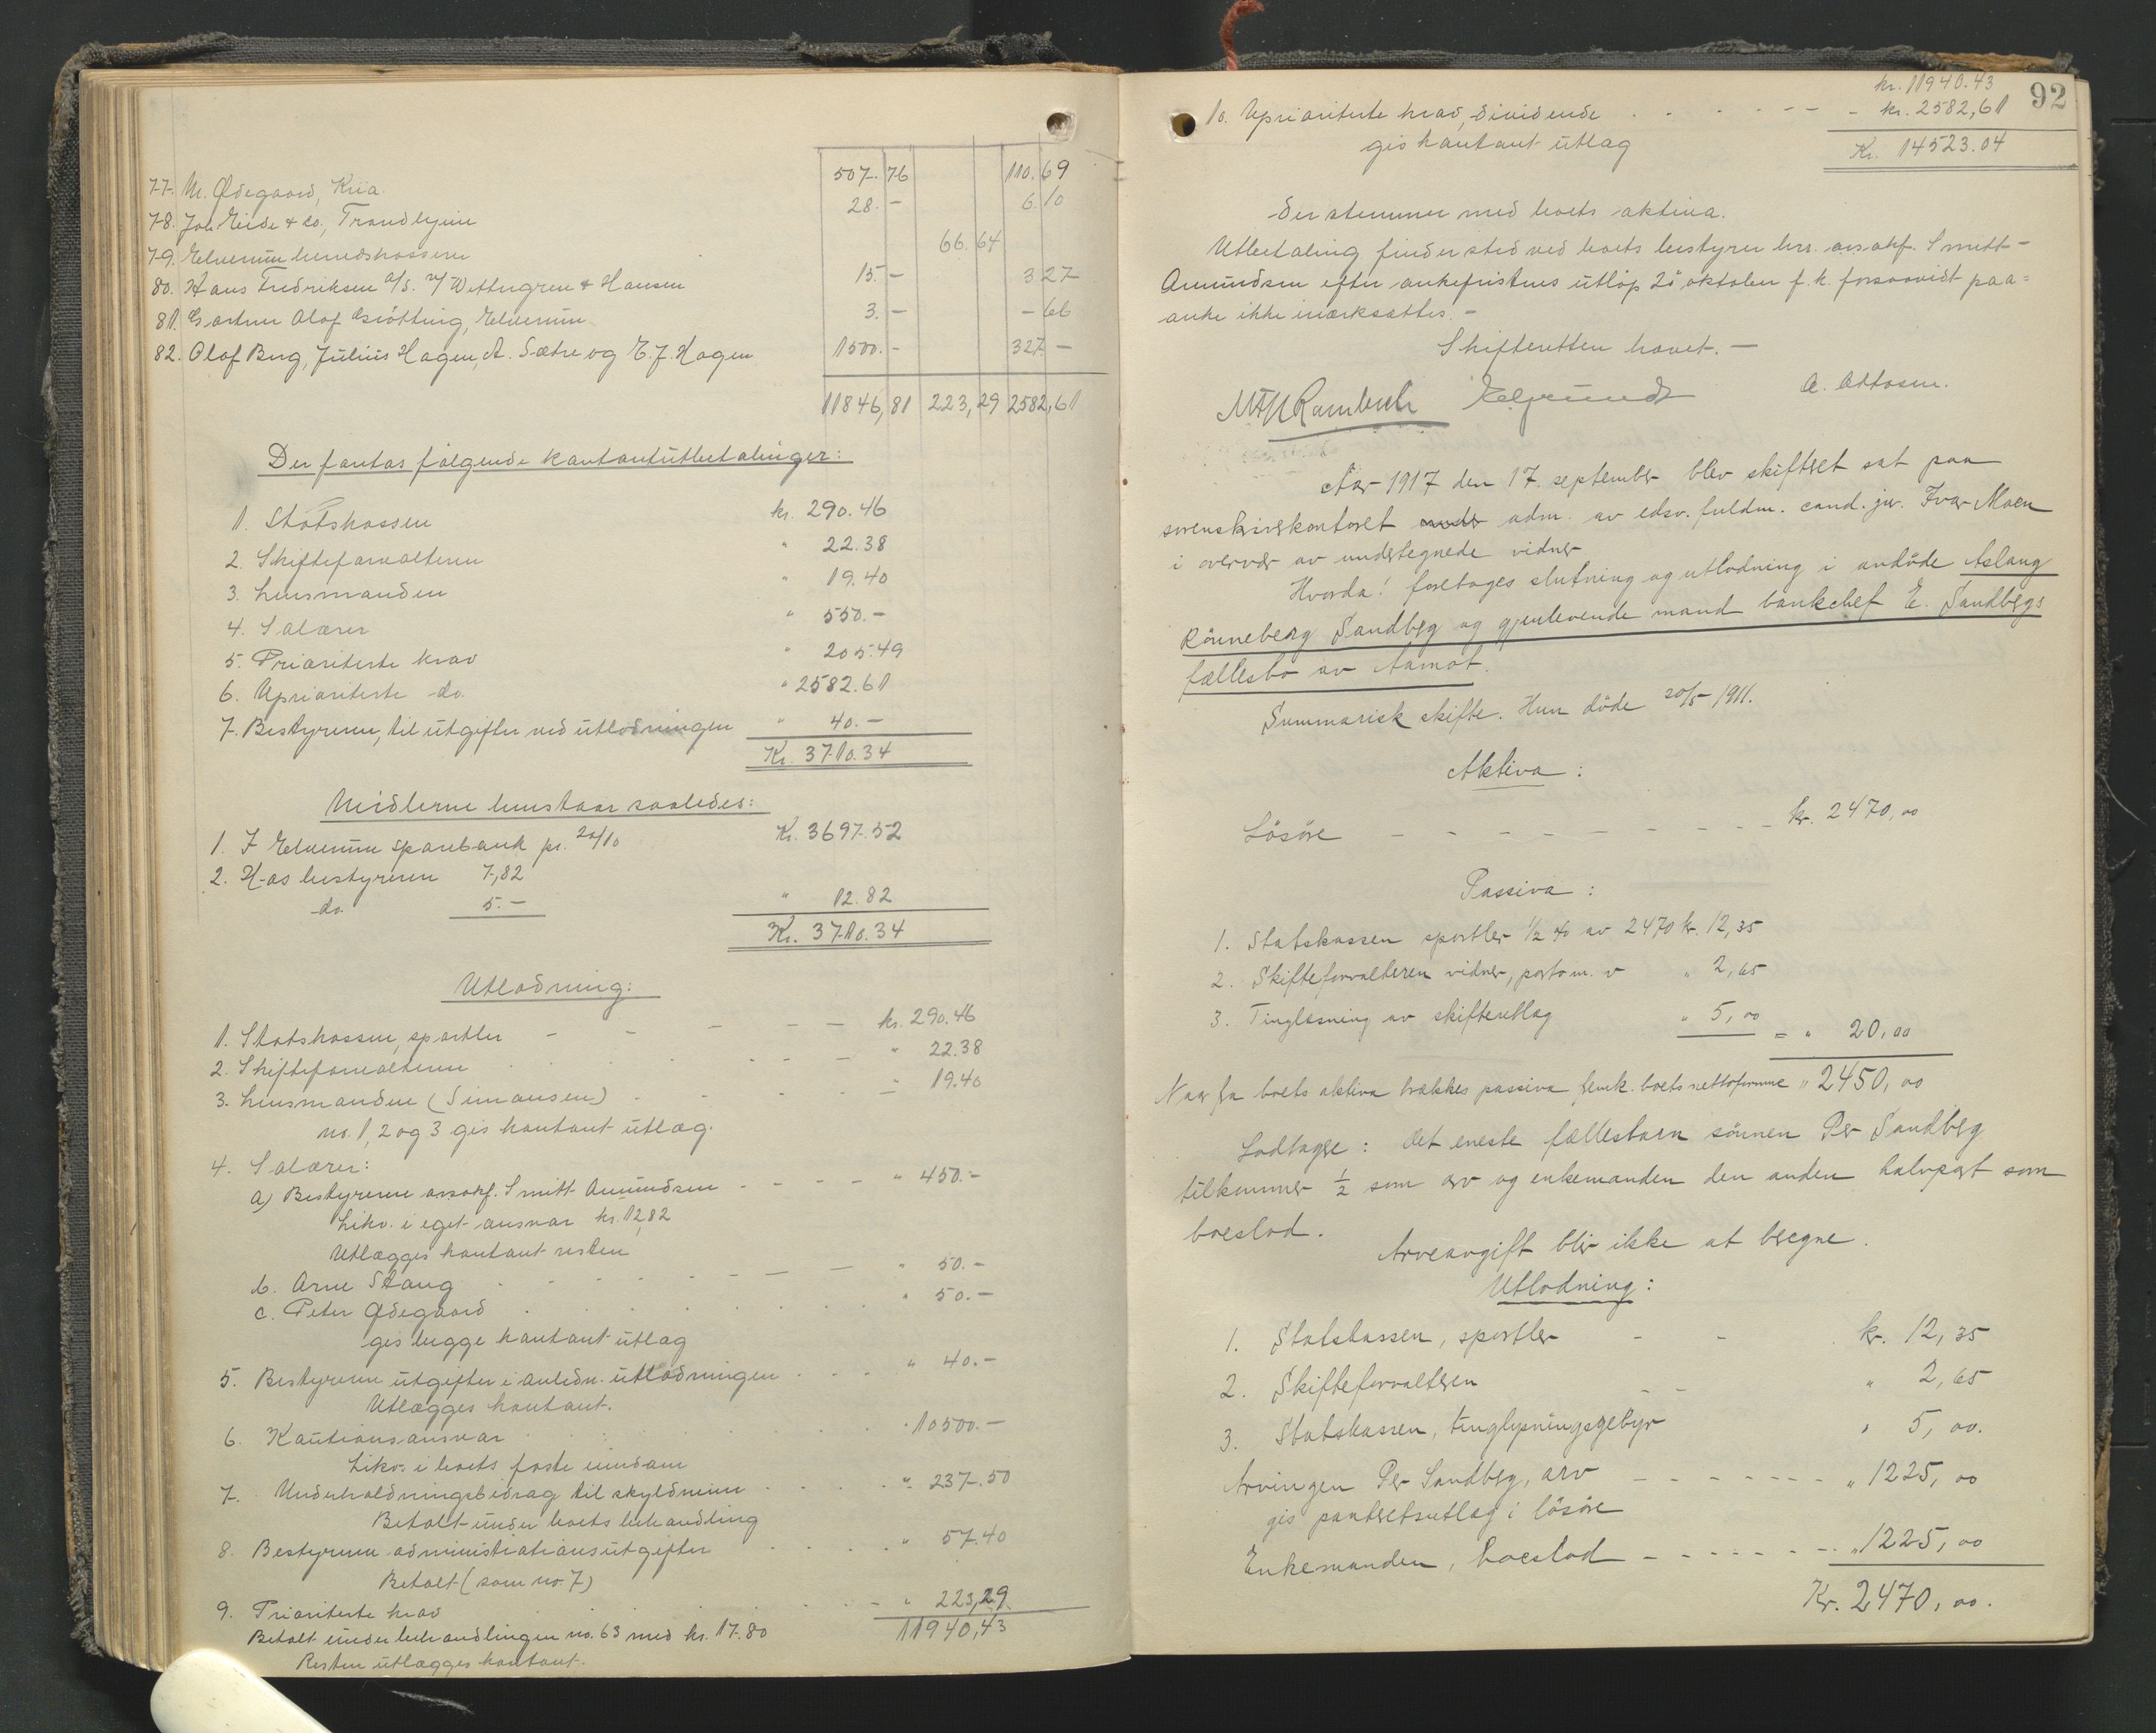 77. M. Ødegaard, Kiia. 507.76 110.69
78. Joh. Eide & Co., Trondhjem 28.- 6.10
79. Elverum herredskassen 66.64
80. Hans Fredriksen a/s. v/ Wettergren & Hansen 15.- 3 27
81. Gartner Olaf Grötting, Elverum 3.- - 66
82. Olaf Berg, Julius Hagen, A. Sætre og E. J. Hagen 1500.- 327 -
11846,81 223,29 2582,61
Der fantas følgende kontantutbetalinger:
1. Statskassen kr. 290.46
2. Skifteforvalteren " 22.38
3. Lensmanden " 19.40
4. Salærer " 550.-
5. Prioriterte krav " 205.49
6. Uprioriterte do. " 2582.61
7. Bestyreren, til utgifter ved utlodningen " 40.-
Kr. 3710.34
Midlerne henstaar saaledes:
1. I Elverum sparebank pr. 20/10 Kr. 3697.52
2. Hos bestyreren 7,82
do. 5.- " 12.82
Kr. 3710.34
Utlodning:
1. Statskassen, sportler - - - - - kr. 290.46
2. Skifteforvalteren . . . - - - " 22.38
3. Lensmanden (Simansen) . - - - - " 19.40
no. 1, 2 og 3 gis kontant utlæg.
4. Salærer:
a) Bestyreren orsakf. Smitt Amundsen - - - - " 450.-
Likv. i eget ansvar kr. 12,82
Utlægges kontant resten
b. Arne Stang . - - - - - - - " 50.-
c. Peter Ødegaard . . . . . . . " 50.-
gis begge kontant utlag
5. Bestyreren utgifter i anledn. utlodningen . . . " 40.-
Utlægges kontant.
6. Kautionsansvar . . . . . " 10500.-
Likv. i boets faste eiendom
7. Underholdningsbidrag til skyldneren . . . . " 237.50
Betalt under boets behandling
8. Bestyreren administrationsutgifter . . . . " 57.40
Betalt (som no. 7)
9. Prioriterte krav . . . - " 223,29
Betalt under behandlingen no. 63 med kr. 17.80 11940,43
Resten utlægges kontant.
92
kr. 11940.43
10. Uprioriterte krav, dividende . . . - - - kr. 2582,61
gis kontant utlag Kr. 14523.04
Der stemmer med boets aktiva.
Utbetaling finder sted ved boets bestyrer hrr. orsakf. Smitt-
Amundsen efter ankefristens utløp 20 oktober f. k. forsaavidt paa=
anke ikke iværksættes. -
Skifteretten hævet. -
A. Ottosen.
Aar 1917 den 17. september blev skifteret sat paa
sorenskriverkontoret under adm. av edsv. fuldm. cand. jur. Ivar Moen
i overvær av undertegnede vidner
Hvorda! foretages slutning og utlodning i avdöde Aslaug
Rönneberg Sandberg og gjenlevende mand bankchef E. Sandbergs
fællesbo av Aamot.
Summarisk skifte. Hun döde 20/5 1911.
Aktiva:
Lösöre - - - - - - - - - - kr. 2470,00
Passiva:
1. Statskassen sportler 1/2 % av 2470 kr. 12,35
2. Skifteforvalteren vidner, porto m. v " 2,65
3. Tinglæsning av skifteutlæg " 5,00 = " 20,00
Naar fra boets aktiva trækkes passiva fremk. boets nettoformue " 2450,00
Lodtagere: Det eneste fællesbarn sönnen Per Sandberg
tilkommer 1/2 som arv og enkemanden den anden halvpart som
boeslod.
Arveavgift blir ikke at beregne.
Utlodning:
1. Statskassen, sportler - - kr. 12,35
2. Skifteforvalteren - - " 2,65
3. Statskassen, tinglysningsgebyr " 5,00.
Arvingen Per Sandberg, arv - - - - - - - " 1225,00
gis panteretsutlæg i lösöre
Enkemanden, boeslod - - - - - - - " 1225,00
Kr. 2470,00.